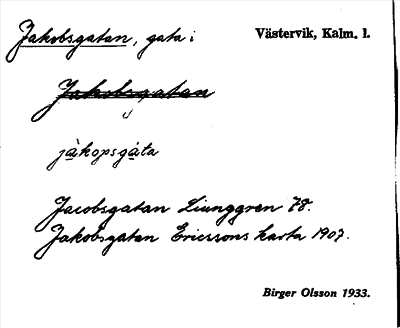 Jakobsgatan, gata i Västervik, Kalm. l.
Jakobsgatan
jàkopsgàta
Jacobsgatan Liunggren 78.
Jakobsgatan Ericssons karta 1907.
Birger Olsson 1933.